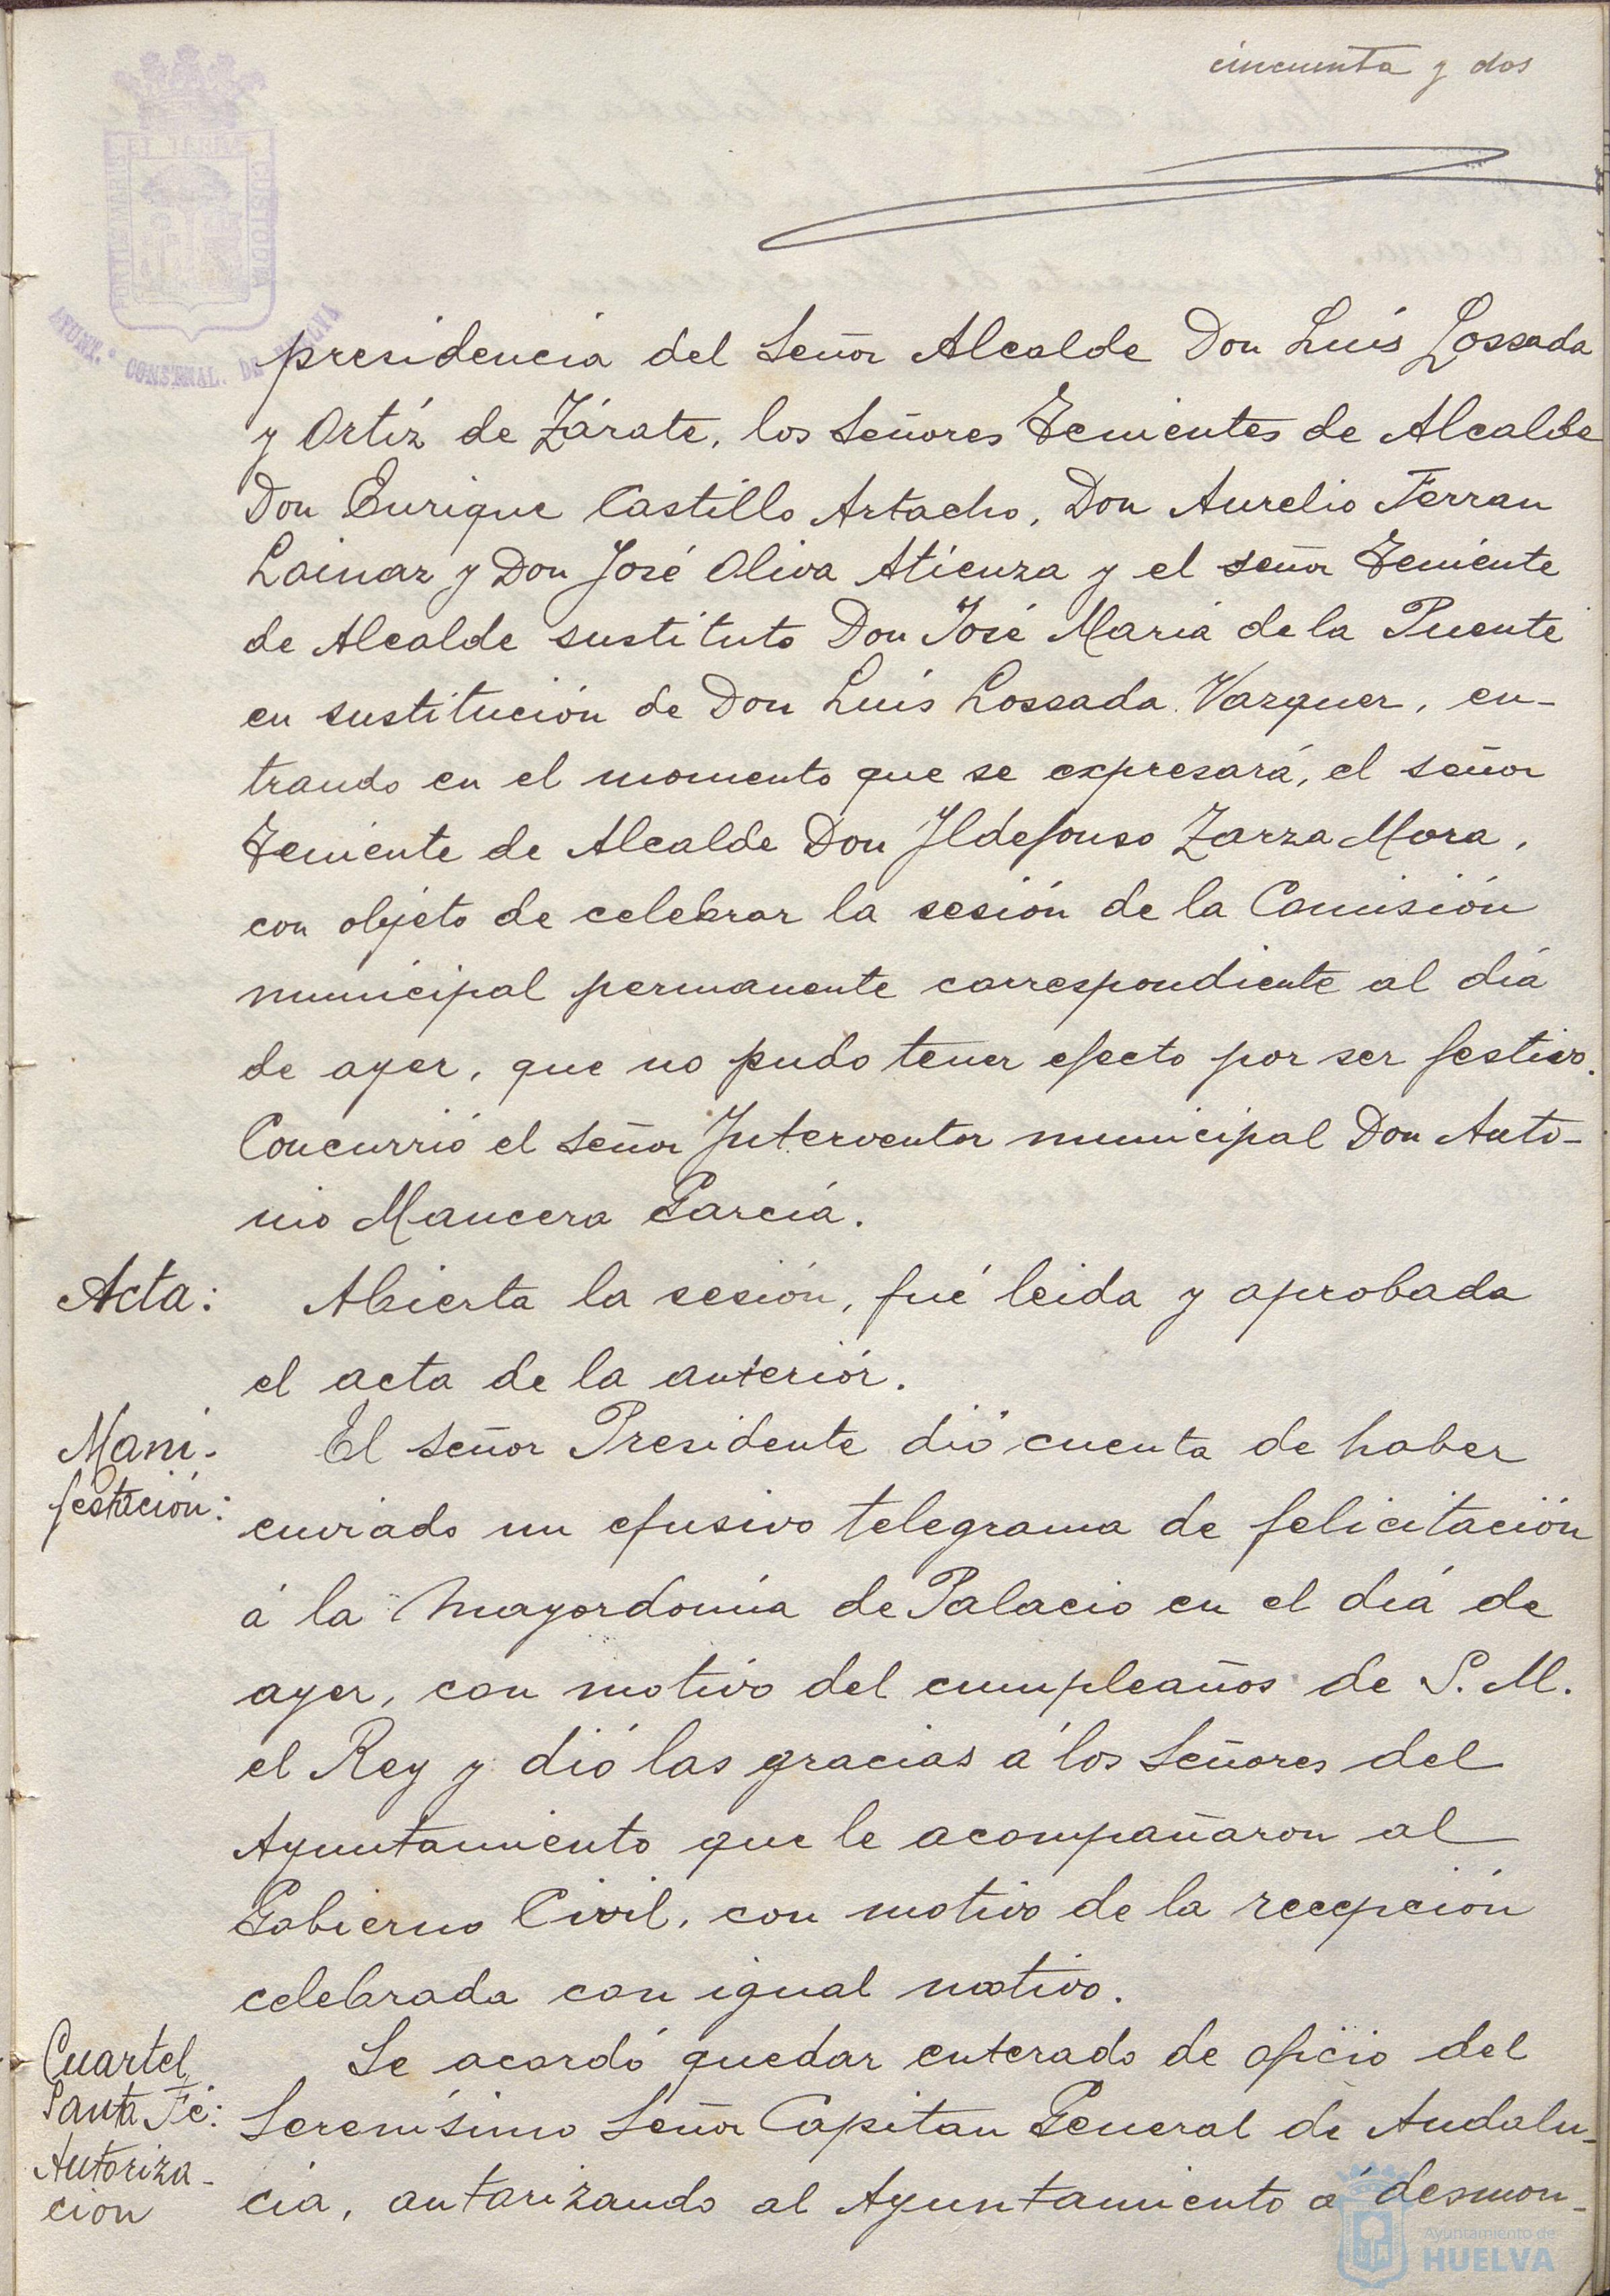 cincuenta y dos
AYUNT.º CONST
NAL. DE HUELVA
presidencia del Señor Alcalde Don Luís Lossada
y Ortíz de Zárate, los Señores Tenientes de Alcalde
Don Enrique Castillo Artacho, Don Aurelio Ferran
Lainar y Don José Oliva Atienza y el señor Teniente
de Alcalde sustituto Don José María de la Puente
en sustitución de Don Luís Lossada Vazquez, en-
trando en el momento que se expresará, el señor
Teniente de Alcalde Don Ildefonso Zarza Mora,
con objeto de celebrar la sesión de la Comisión
municipal permanente correspondiente al día
de ayer, que no pudo tener efecto por ser festivo.
Concurrió el Señor Interventor municipal Don Anto-
nio Mancera García.
Acta: Abierta la sesión, fué leida y aprobada
el acta de la anteriór.
Mani- El Señor Presidente dió cuenta de haber
festación: enviado un efusivo telegrama de felicitación
á la Mayordomía de Palacio en el día de
ayer, con motivo del cumpleaños de S. M.
el Rey y dió las gracias á los Señores del
Ayuntamiento que le acompañaron al
Gobierno Civil, con motivo de la recepción
celebrada con igual motivo.
Cuartel Se acordó quedar enterado de oficio del
Santa Fé: Serenísimo Señor Capitan General de Andalu-
Autoriza- cía, autorizando al Ayuntamiento á desmon-
ción
Ayuntamiento de
HUELVA